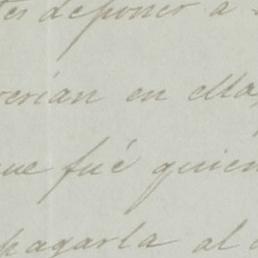 tes deponer a
verían en ella,
que fué quien
pagarla al